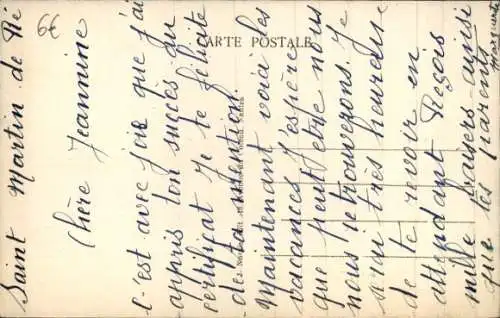 6€
CARTE POSTALE
Saint Martin de Ré
Chère Jeannine
c'est avec joie que j'ai
appris ton succès au
certificat je te félicite
de ta mention.
Maintenant voici les
vacances j'espère
que peut être nous
nous retrouverons. Je
serai très heureuse
de te revoir en
attendant Reçois
mille baisers ainsi
que tes parents